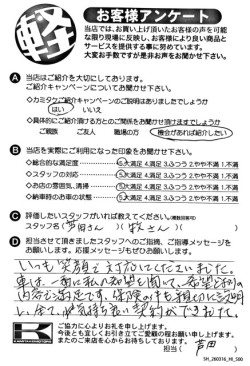 軽
お客様アンケート
当店では、お買い上げ頂いたお客様の声を可能
な限り現場に反映し、お客様により良い商品と
サービスを提供する事に努めています。
大変お手数ですが是非お声をお聞かせ下さい。
A 当店はご紹介を大切にしております。
ご紹介キャンペーンについてお聞かせ下さい。
◇カミタケご紹介キャンペーンのご説明はありましたでしょうか
はい いいえ
◇具体的にご紹介頂ける方とのご関係をお聞かせ頂けますでしょうか
ご親族 ご友人 職場の方 機会があれば紹介したい
B 当店を実際にご利用になった印象をお聞かせ下さい。
◇総合的な満足度 5.大満足 4.満足 3.ふつう 2.やや不満 1.不満
◇スタッフの対応 5.大満足 4.満足 3.ふつう 2.やや不満 1.不満
◇お店の雰囲気、清掃 5.大満足 4.満足 3.ふつう 2.やや不満 1.不満
◇納車時のお車の状態 5.大満足 4.満足 3.ふつう 2.やや不満 1.不満
C 評価したいスタッフがいれば教えてください。(複数回答可)
スタッフ名( 芦田さん )( さん )
D 担当させて頂きましたスタッフへのご指摘、ご指導メッセージを
お願いします。応援メッセージもぜひお願いします。
いつも笑顔で対応してくださいました。
車は、一番に私の如望を聞いて、希望通りの
内容で満足です。保険の件も親切に説明
し、全て、気持ち良い契約ができました。
K
ご協力に心よりお礼を申し上げます。
今後とも宜しくお引き立てご愛顧の程お願い申し上げます。
またのご来店を心からお待ちしております。
担当( 芦田 )
SH_260316_IR_500